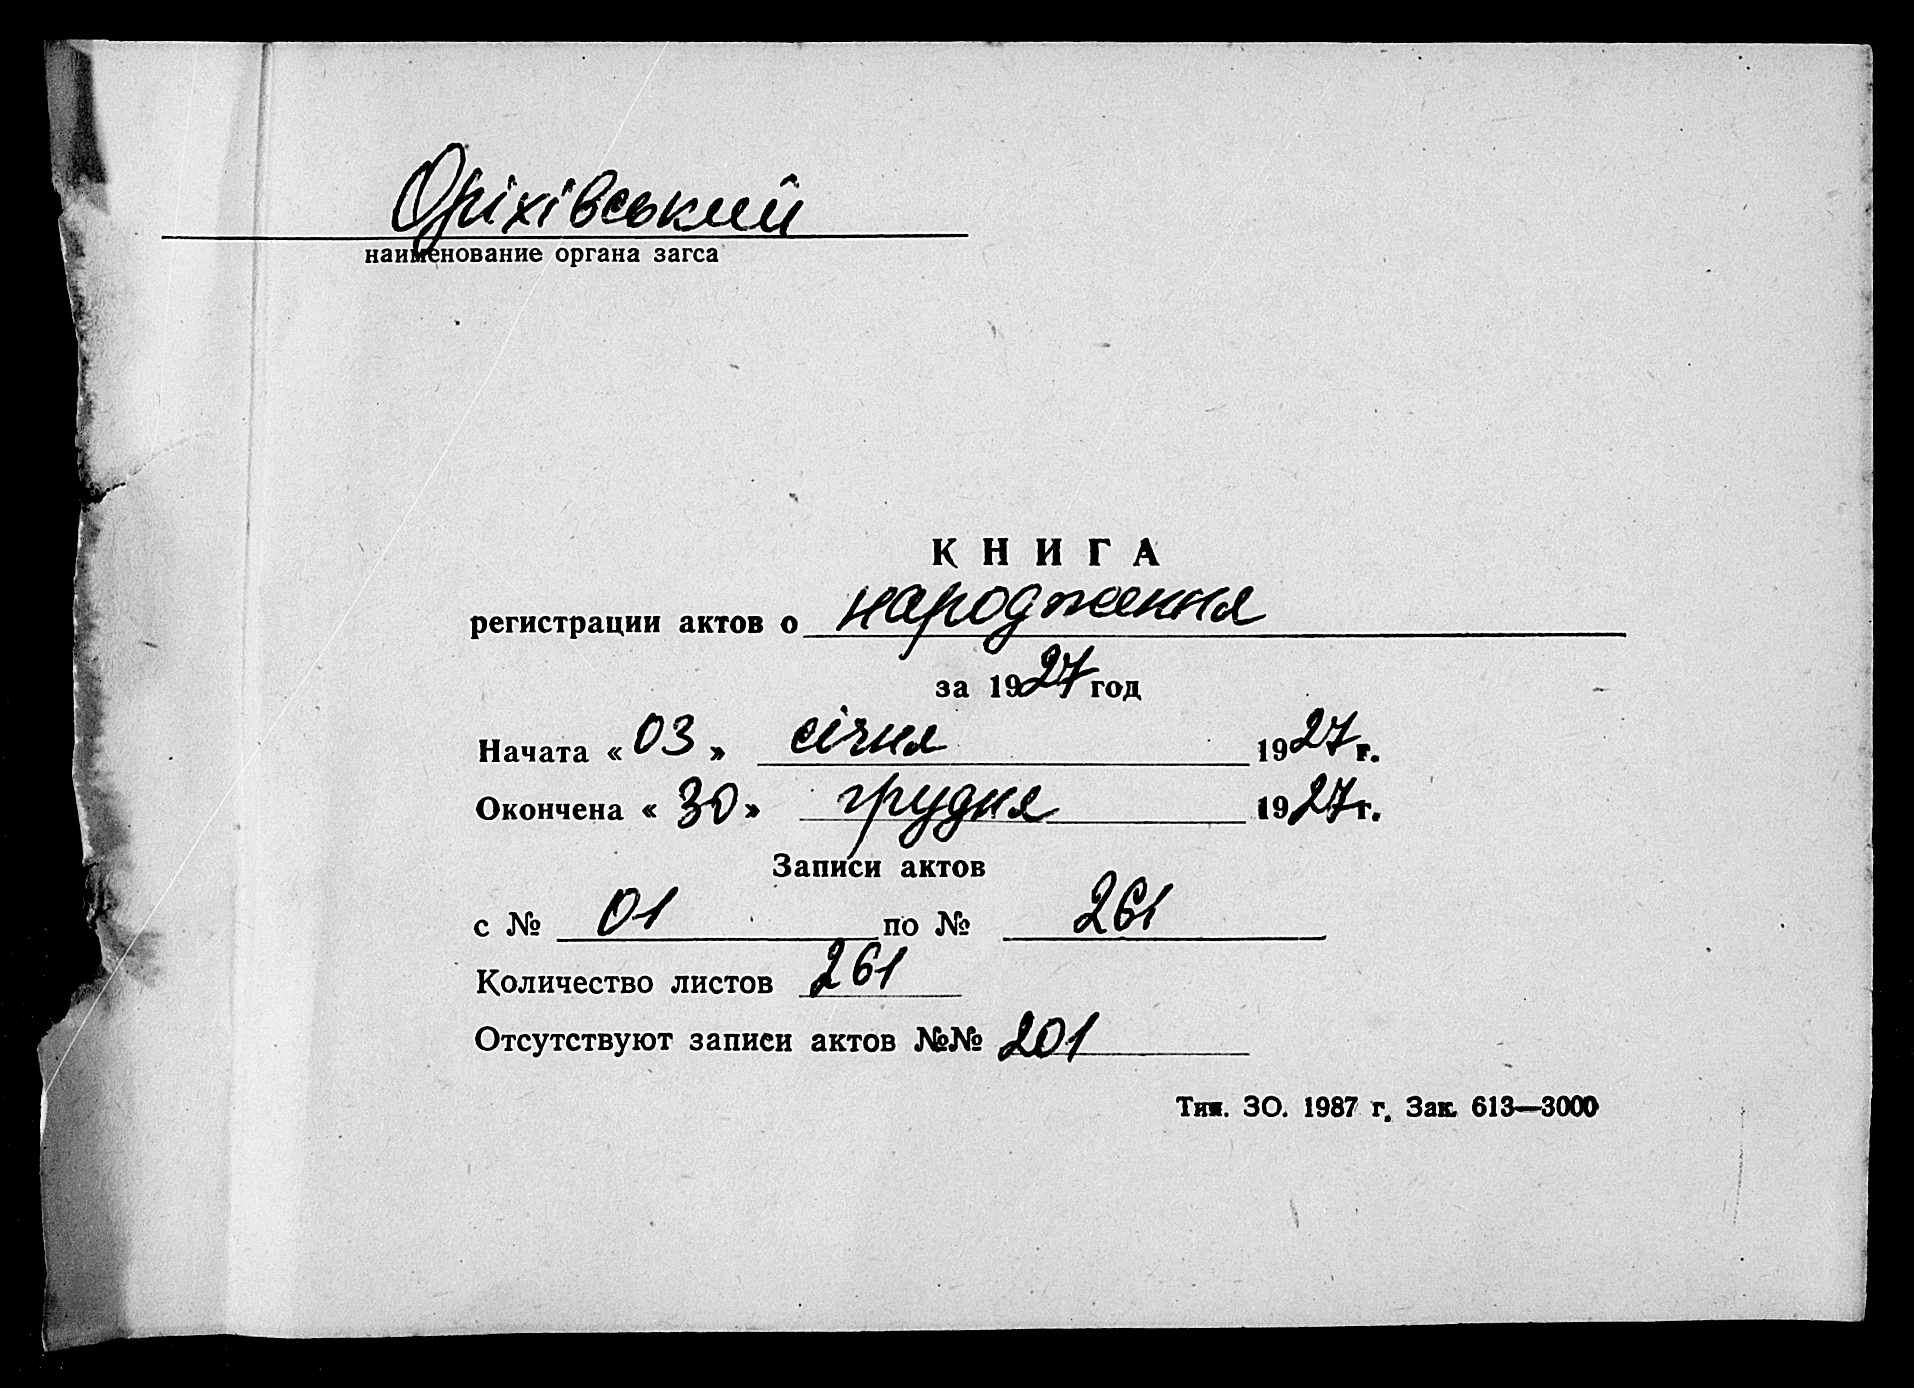 Оріхівський
наименование органа загса
КНИГА
регистрации актов о народження
за 1927 год
Начата « 03 » січня 1927 г.
Окончена « 30 » грудня 1927 г.
Записи актов
с № 01 по № 261
Количество листов 261
Отсутствуют записи актов №№ 201
Тип. ЗО. 1987 г. Зак. 613—3000